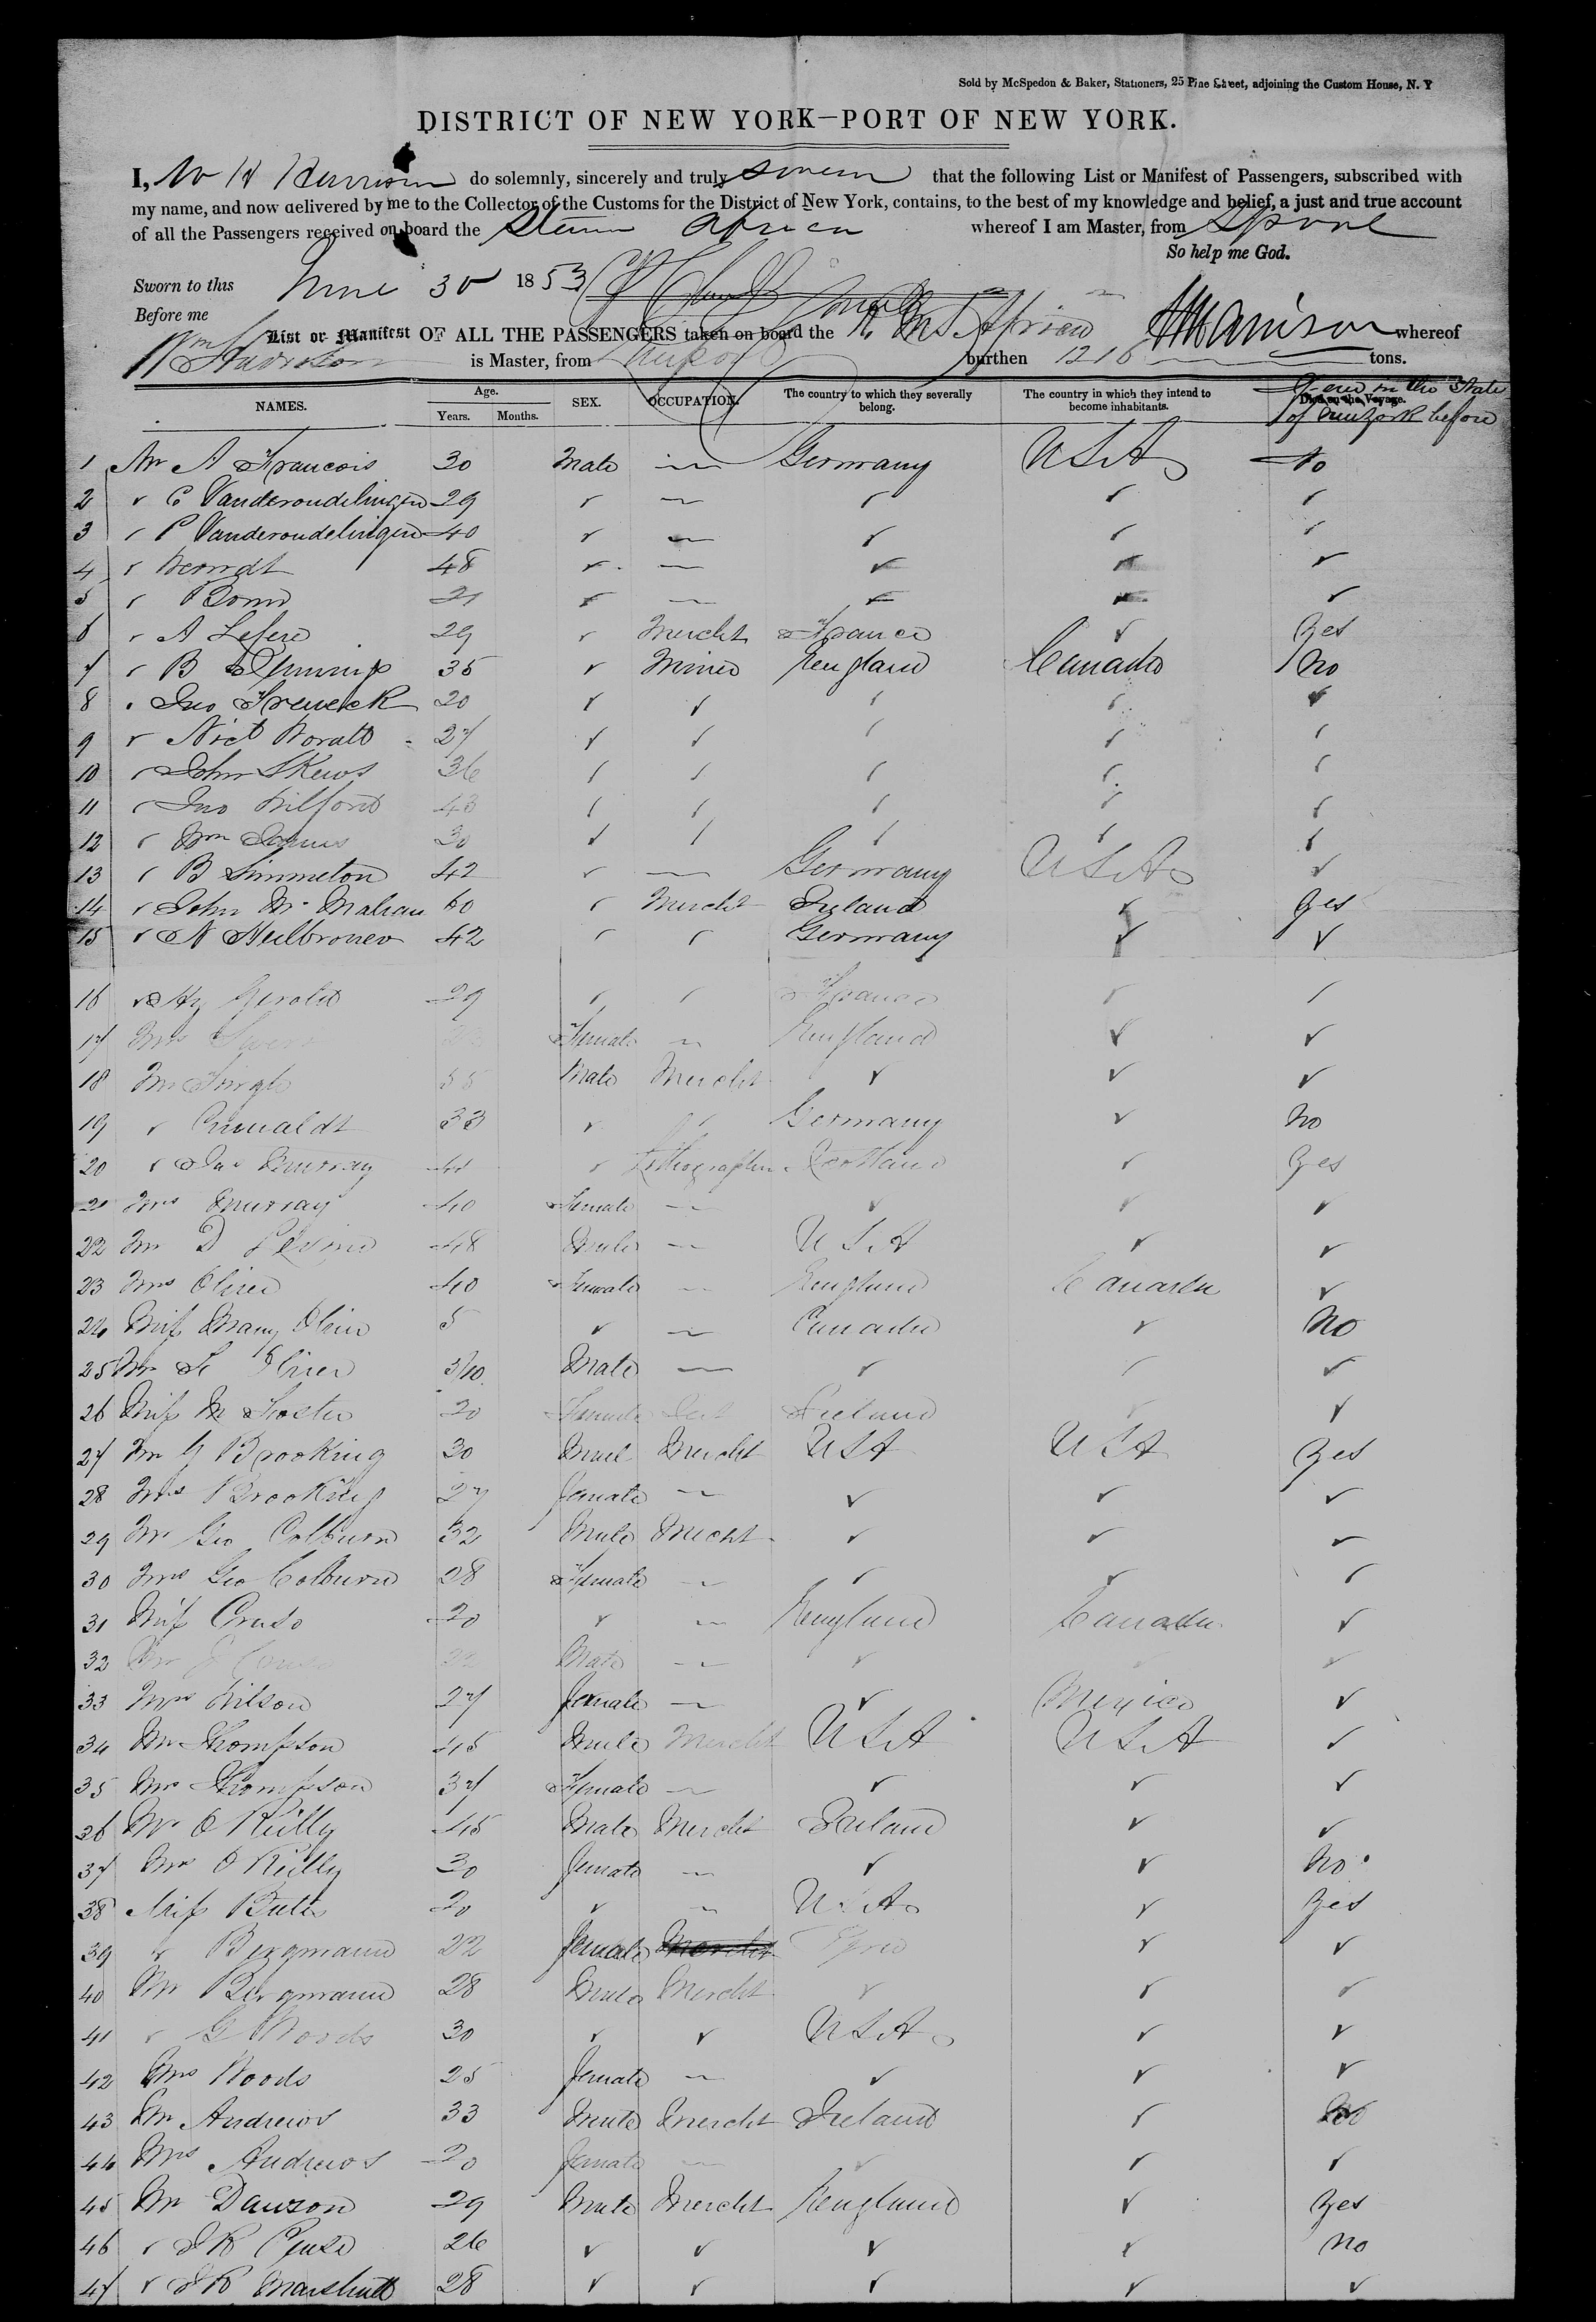 Sold by McSpedon & Baker, Stationers, 25 Pine Street, adjoining the Custom House, N. Y
DISTRICT OF NEW YORK—PORT OF NEW YORK.
I, W H Harrison do solemnly, sincerely and truly swear that the following List or Manifest of Passengers, subscribed with
my name, and now delivered by me to the Collector of the Customs for the District of New York, contains, to the best of my knowledge and belief, a just and true account
of all the Passengers received on board the Steam Africa whereof I am Master, from Lpool
So help me God.
Sworn to this June 30 1853
Before me
List or Manifest OF ALL THE PASSENGERS taken on board the R. M. S. Africa whereof
Wm Harrison is Master, from burthen tons.
NAMES. Age. Years. Months. SEX. OCCUPATION. The country to which they severally belong. The country in which they intend to become inhabitants. Died on the Voyage.
1 Mr A Francois 30 Male — Germany USA No
2 " C 29 " — " " "
3 " P 40 " — " " "
4 " 48 " — " " "
5 " " — " " "
6 " A 29 " Mercht France " Yes
7 " B 35 " Miner England Canada No
8 " Jno 20 " " " " "
9 " 27 " " " " "
10 " John Skews 36 " " " " "
11 " Jno Wilford 43 " " " " "
12 " Wm 30 " " " " "
13 " B Simmeton 42 " — Germany USA "
14 " John 60 " Mercht Ireland " Yes
15 " N Heilbroner 42 " " Germany " "
16 " Hy Gerold 29 " " France " "
17 Mrs Female — England " "
18 Mr 55 Male Mercht " " "
19 " 33 " " Germany " No
20 " Jas Murray " Lithographer Scotland " Yes
21 Mrs Murray 40 Female — " " "
22 Mr D 48 Male — USA " "
23 Mrs Oliver 40 Female — England Canada "
24 Miss Mary Oliver 5 " — Canada " No
25 Mr Oliver 3/10 Male — " " "
26 Miss M Foster 20 Female Ireland " "
27 Mr G Brooking 30 Male Mercht USA USA Yes
28 Mrs Brooking 27 Female — " " "
29 Mr Geo Colburn 32 Male Mercht " " "
30 Mrs Geo Colburn 28 Female — " " "
31 Miss Cruso 20 " — England Canada "
32 Mr 22 Male — " " "
33 Mrs Wilson 27 Female — " Mexico "
34 Mr Thompson 45 Male Mercht USA USA "
35 Mrs Thompson 37 Female — " " "
36 Mr O Reilly 45 Male Mercht Ireland " "
37 Mrs O Reilly 30 Female — " " No
38 Miss 20 " — USA " Yes
39 " Bergmann 22 Female " "
40 Mr Bergmann 28 Male Mercht " " "
41 " G Woods 30 " " USA " "
42 Mrs Woods 25 Female — " " "
43 Mr Andrews 33 Male Mercht Ireland "
44 Mrs Andrews 20 Female — " " "
45 Mr Dawson 29 Male Mercht England " Yes
46 " J R 26 " " " " No
47 " J R 28 " " " " "